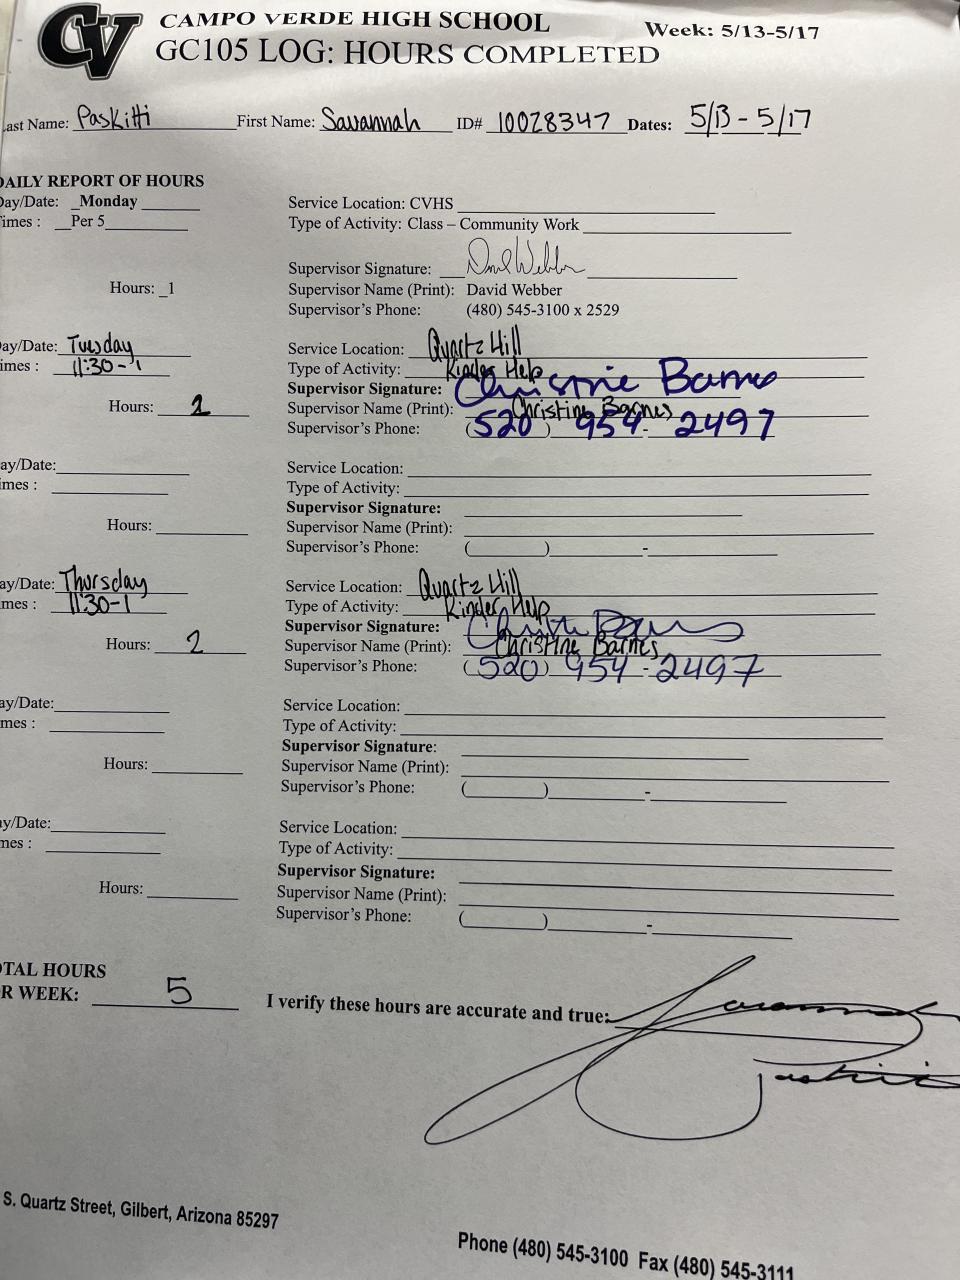 CV
CAMPO VERDE HIGH SCHOOL
Week: 5/13-5/17
GC105 LOG: HOURS COMPLETED
ast Name: Paskitti First Name: Savannah ID# 10028347 Dates: 5/13 - 5/17
DAILY REPORT OF HOURS
Day/Date: _Monday
Service Location: CVHS
Times : Per 5
Type of Activity: Class – Community Work
Supervisor Signature: David Webber
Hours: _1
Supervisor Name (Print): David Webber
Supervisor's Phone: (480) 545-3100 x 2529
ay/Date: Tuesday
Service Location: Quartz Hill
imes : 11:30-1
Type of Activity: Kinder Help
Supervisor Signature: Christine Barnes
Hours: 2
Supervisor Name (Print): Christine Barnes
Supervisor's Phone: (520) 954-2497
ay/Date:
Service Location:
imes :
Type of Activity:
Supervisor Signature:
Hours:
Supervisor Name (Print):
Supervisor's Phone: ( ) -
ay/Date: Thursday
Service Location: Quartz Hill
mes : 11:30-1
Type of Activity: Kinder Help
Supervisor Signature: Christine Barnes
Hours: 2
Supervisor Name (Print): Christine Barnes
Supervisor's Phone: (520) 954-2497
ay/Date:
Service Location:
mes :
Type of Activity:
Supervisor Signature:
Hours:
Supervisor Name (Print):
Supervisor's Phone: ( ) -
ay/Date:
Service Location:
mes :
Type of Activity:
Supervisor Signature:
Hours:
Supervisor Name (Print):
Supervisor's Phone: ( ) -
OTAL HOURS
R WEEK: 5
I verify these hours are accurate and true: Savannah
Paskitti
S. Quartz Street, Gilbert, Arizona 85297
Phone (480) 545-3100 Fax (480) 545-3111